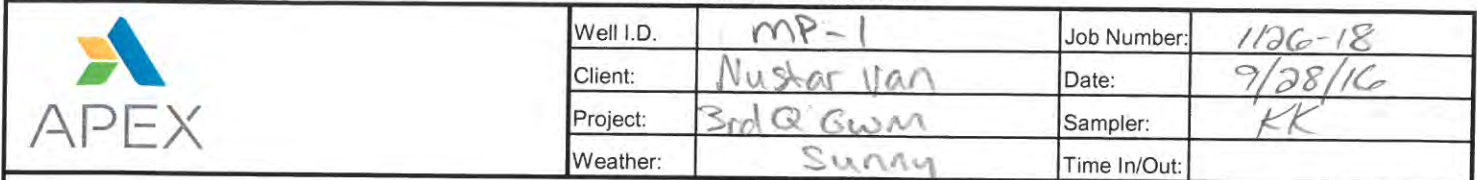 APEX
Well I.D. MP-1 Job Number: 1126-18
Client: Nustar Van Date: 9/28/16
Project: 3rd Q GWM Sampler: KK
Weather: Sunny Time In/Out: